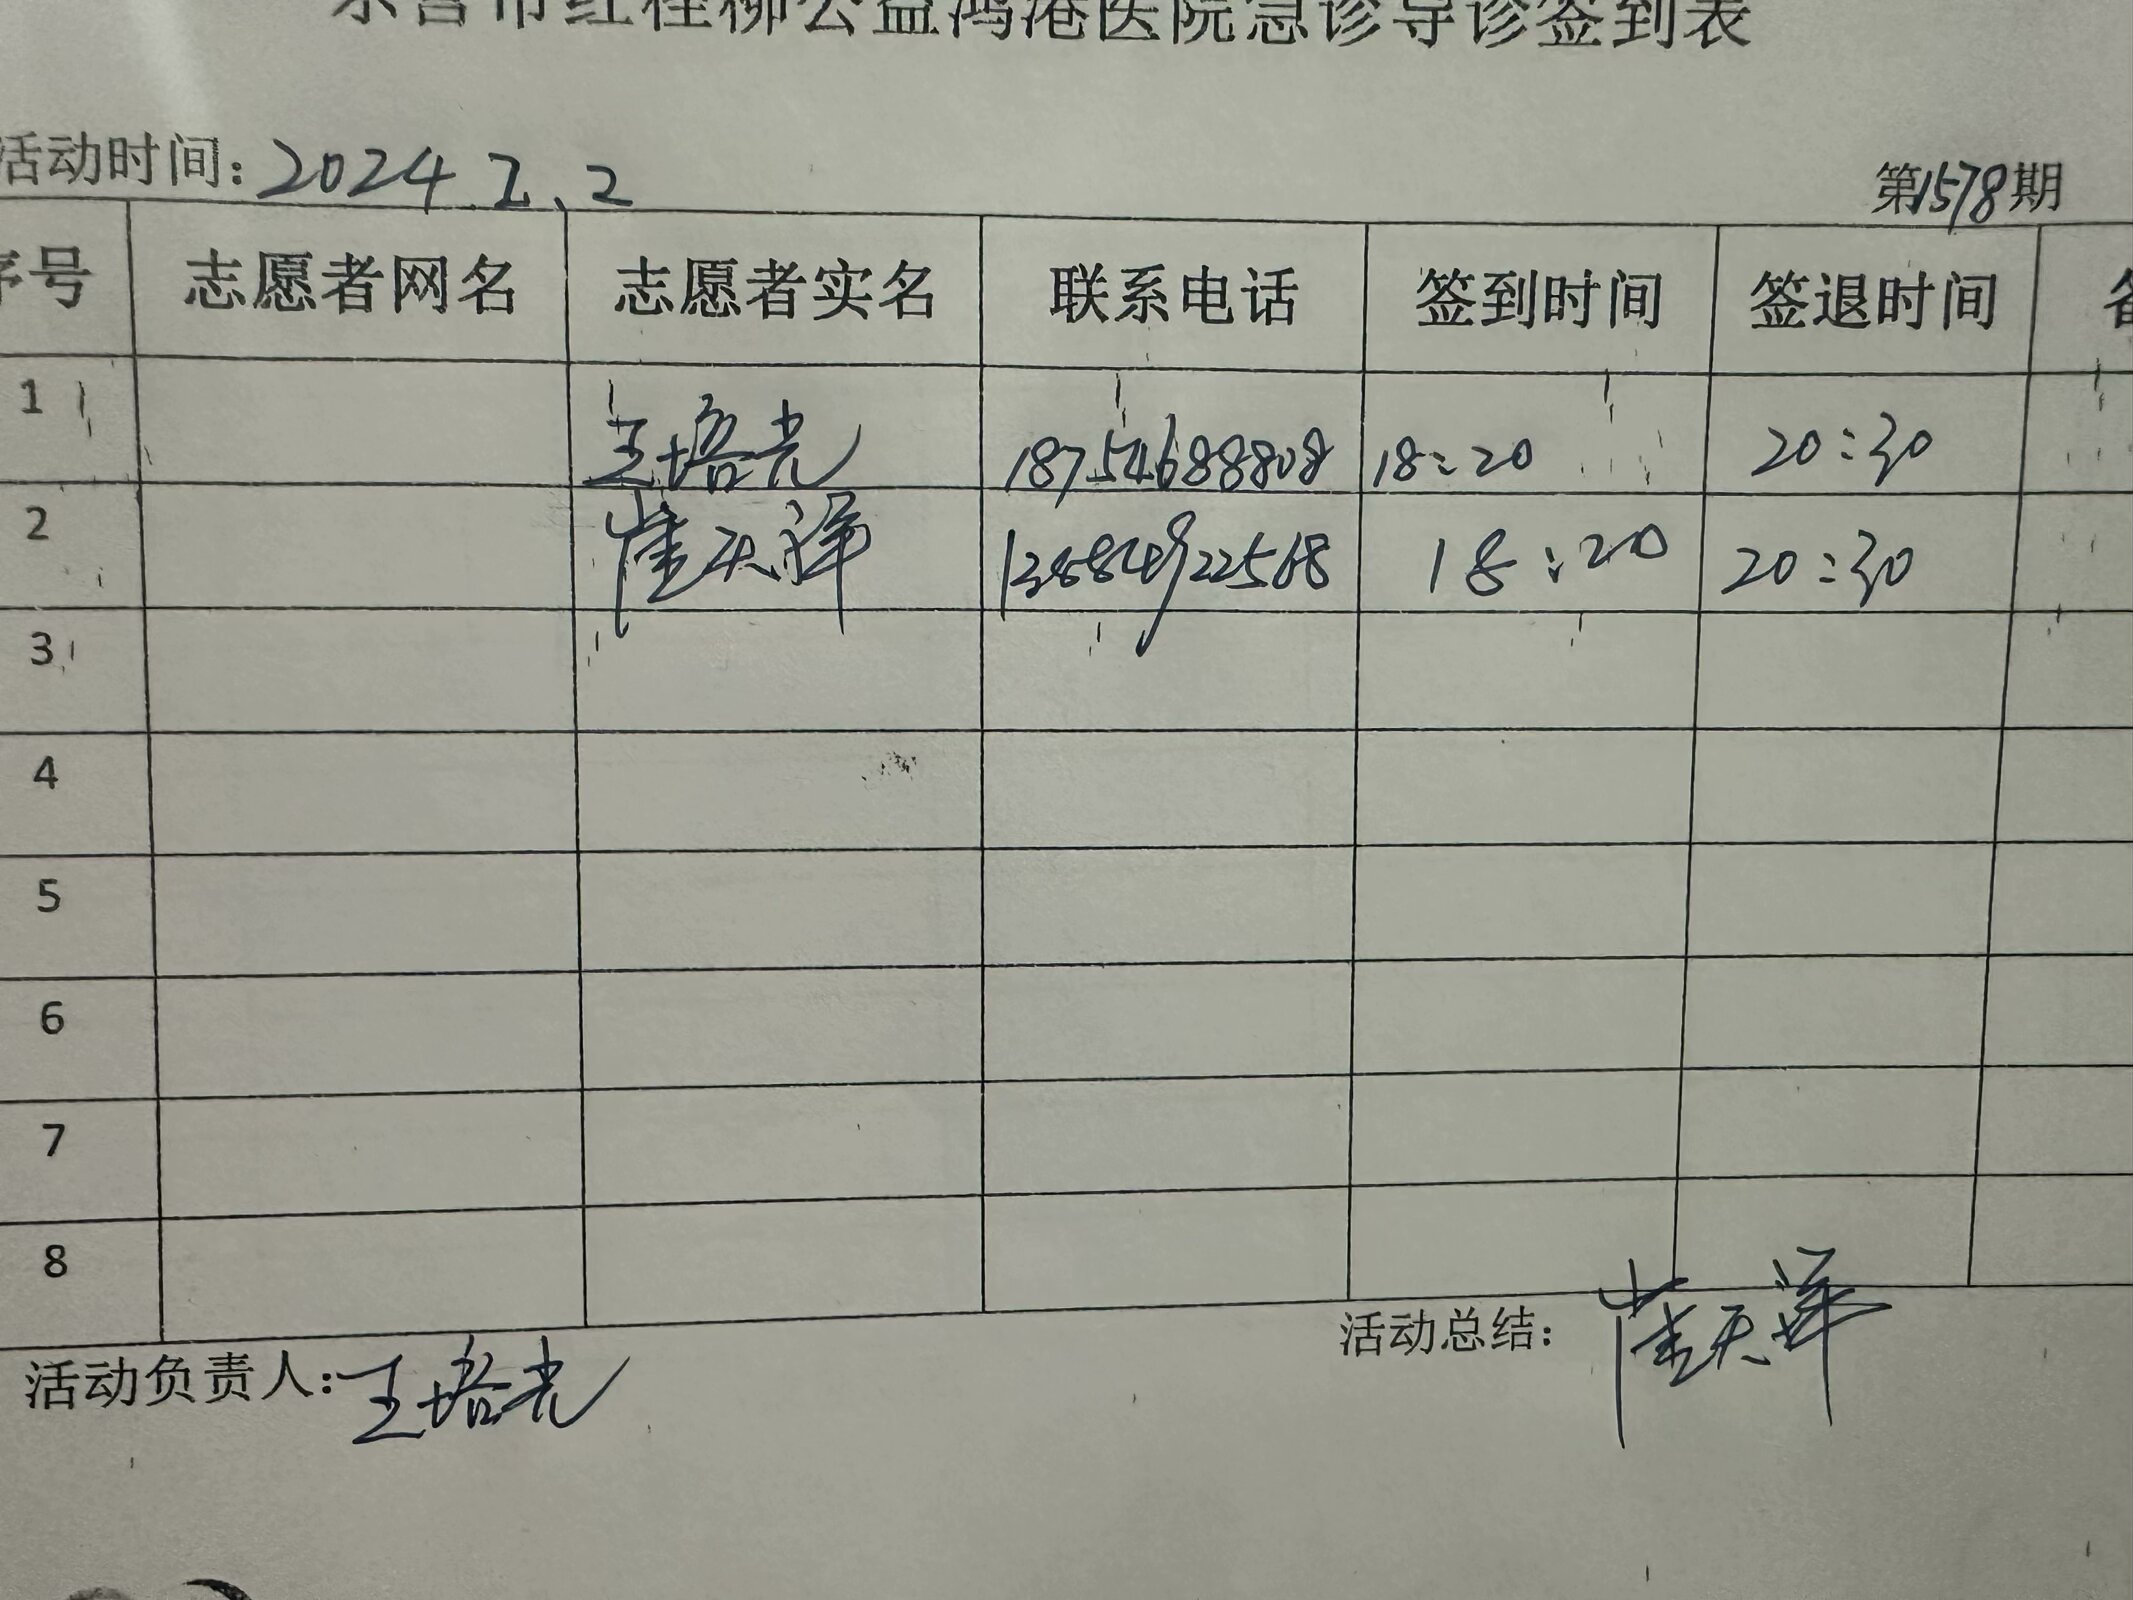 东营市红柽柳公益鸿港医院急诊导诊签到表
活动时间：2024.2.2 第1578期
序号 志愿者网名 志愿者实名 联系电话 签到时间 签退时间 备
1 王培光 18754688808 18:20 20:30
2 崔天洋 18:20 20:30
3
4
5
6
7
8
活动总结：崔天洋
活动负责人：王培光